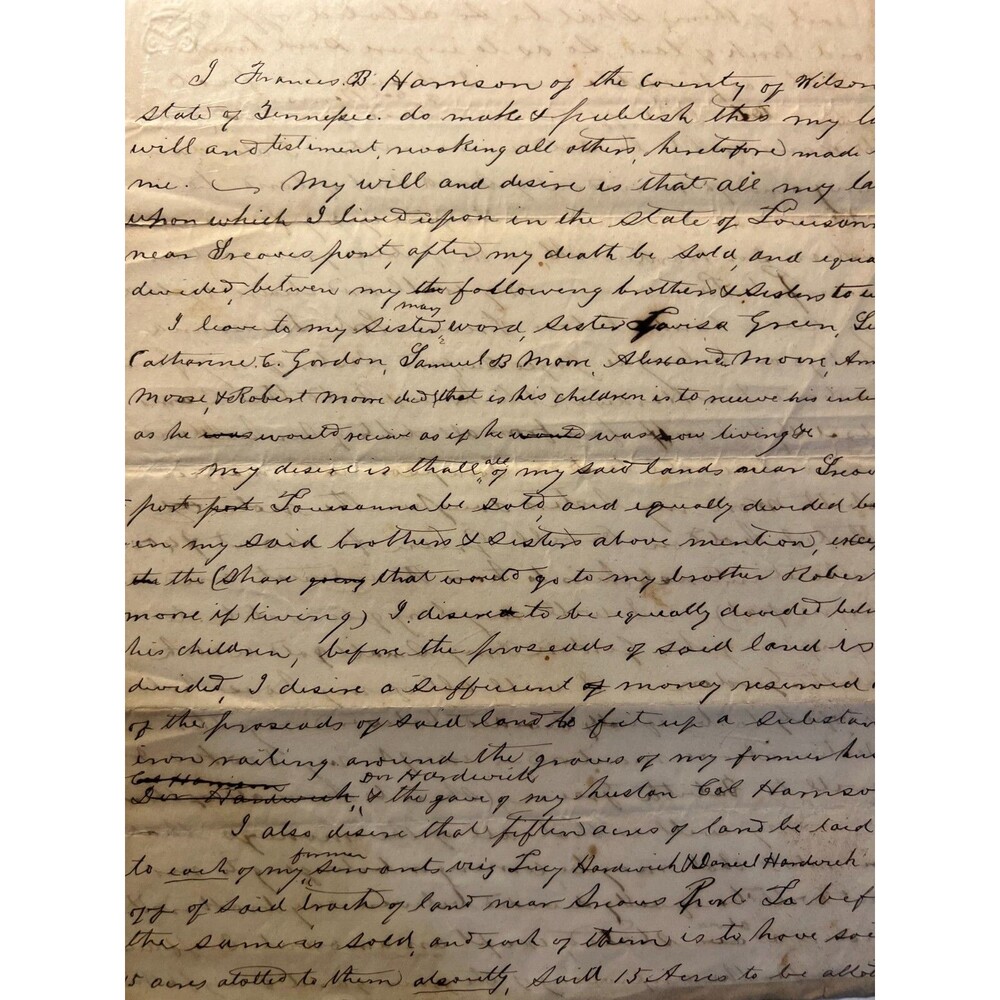 I Frances. B Harrison of the County of Wilson
state of Tennessee. do make & publish this my la
will and testiment, revoking all others, heretofore made
me. My will and desire is that all my la
upon which I lived upon in the state of Louisann
near Greavespost, after my death be sold, and equa
devided, betwen my the following brothers & Sisters to
I leave to my Sister may word, Sister Lovisa Green,
Catharine. C. Gordon, Samuel B Moore, Alexand Moore,
Moore, & Robert Moore decd that is his children is to receive his inte
as he was would receive as if he would was now living &c.
My desire is that all of my said lands near Greav
post post Louisanna be sold, and equally devided be
en my said brothers & Sisters above mention, excep
the the (Share going that would go to my brother Rober
more if living) I desired to be equally devided betw
his children, before the proseads of said land is
devided, I desire a suffecient of money reserved
of the proseads of said land to fit up a substan
iron railing around the graves of my former hus
Col Harrison Don Hardwick
Don Hardwick, & the gave of my huston Col Harriso
I also desire that fifteen acres of land be laid
to each of my former Servants viz Lucy Hardwick & Daniel Hardwick
off of said track of land near Greaves Post La bef
the same is sold, and each of them is to have sai
15 acres alotted to them absoutly, said 15 Acres to be allot